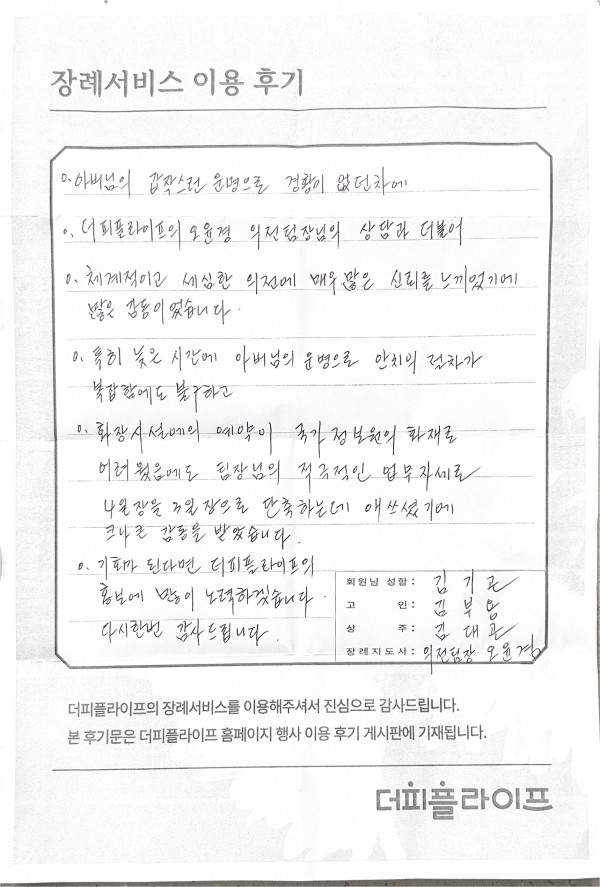 장례서비스 이용 후기
о. 아버님의 갑작스런 운명으로 경황이 없던차에
о. 더피플라이프의 오윤경 의전팀장님의 상담과 더불어
о. 체계적이고 세심한 의전에 매우많은 신뢰를 느끼었기에
많은 감동이었습니다.
о. 특히 늦은 시간에 아버님의 운명으로 안치의 절차가
복잡함에도 불구하고
о. 화장시설에의 예약이 국가정보원의 화재로
어려웠음에도 팀장님의 적극적인 업무자세로
4일장을 3일장으로 단축하는데 애쓰셨기에
크나큰 감동을 받았습니다.
о. 기회가 된다면 더피플라이프의
홍보에 많이 노력하겠습니다
다시한번 감사드립니다.
회원님 성함 : 김기관
고 인 : 김부용
상 주 : 김대관
장례지도사 : 의전팀장 오윤경
더피플라이프의 장례서비스를 이용해주셔서 진심으로 감사드립니다.
본 후기문은 더피플라이프 홈페이지 행사 이용 후기 게시판에 기재됩니다.
더피플라이프